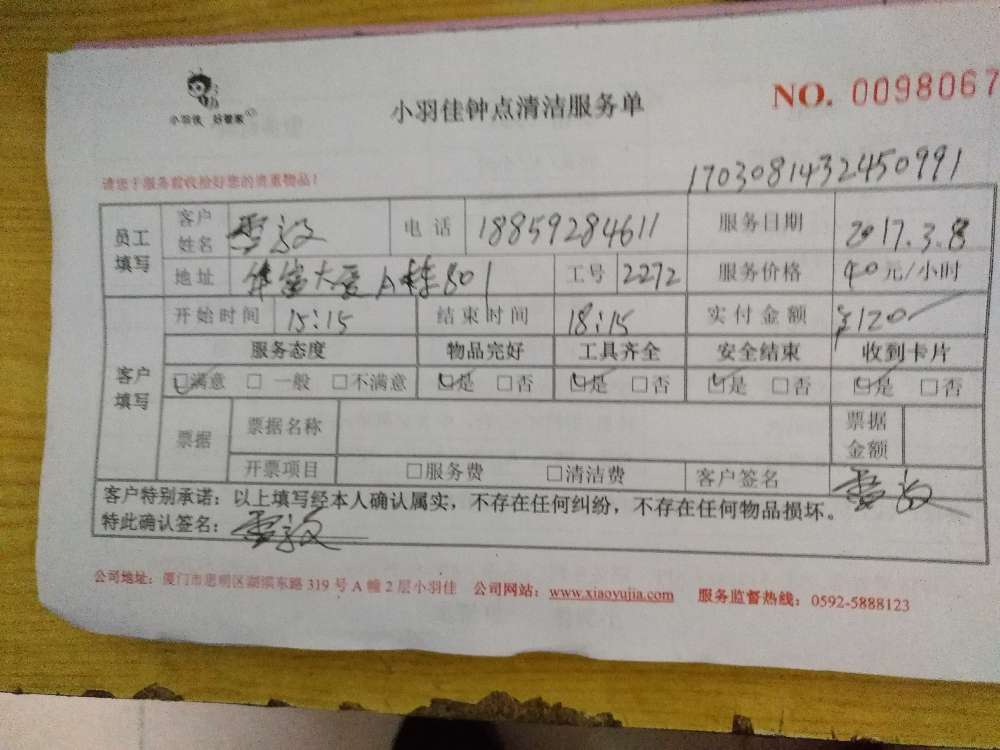 小羽佳 好管家
小羽佳钟点清洁服务单
NO. 0098067
请您于服务前收捡好您的贵重物品!
1703081432450991
员工填写 客户姓名 电话 18859284611 服务日期 2017.3.8
地址 华富大厦A栋801 工号 2272 服务价格 40元/小时
客户填写 开始时间 15:15 结束时间 18:15 实付金额 ¥120
服务态度 物品完好 工具齐全 安全结束 收到卡片
☑满意 □一般 □不满意 ☑是 □否 ☑是 □否 ☑是 □否 ☑是 □否
票据 票据名称 票据金额
开票项目 □服务费 □清洁费 客户签名
客户特别承诺:以上填写经本人确认属实,不存在任何纠纷,不存在任何物品损坏。
特此确认签名:
公司地址:厦门市思明区湖滨东路319号A幢2层小羽佳 公司网站:www.xiaoyujia.com 服务监督热线:0592-5888123